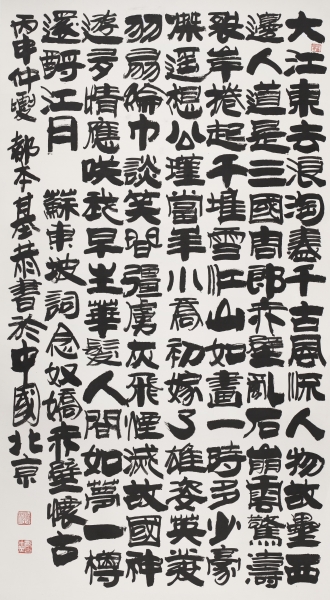 大江東去浪淘盡千古風流人物故壘西
邊人道是三國周郎赤壁亂石崩雲驚濤
裂岸捲起千堆雪江山如畫一時多少豪
傑遥想公瑾當年小喬初嫁了雄姿英發
羽扇綸巾談笑間彊虜灰飛煙滅故國神
遊多情應咲我早生華髮人間如夢一樽
還酹江月 蘇東坡詞念奴嬌赤壁懷古
丙申仲夏 都本基恭書於中國北京